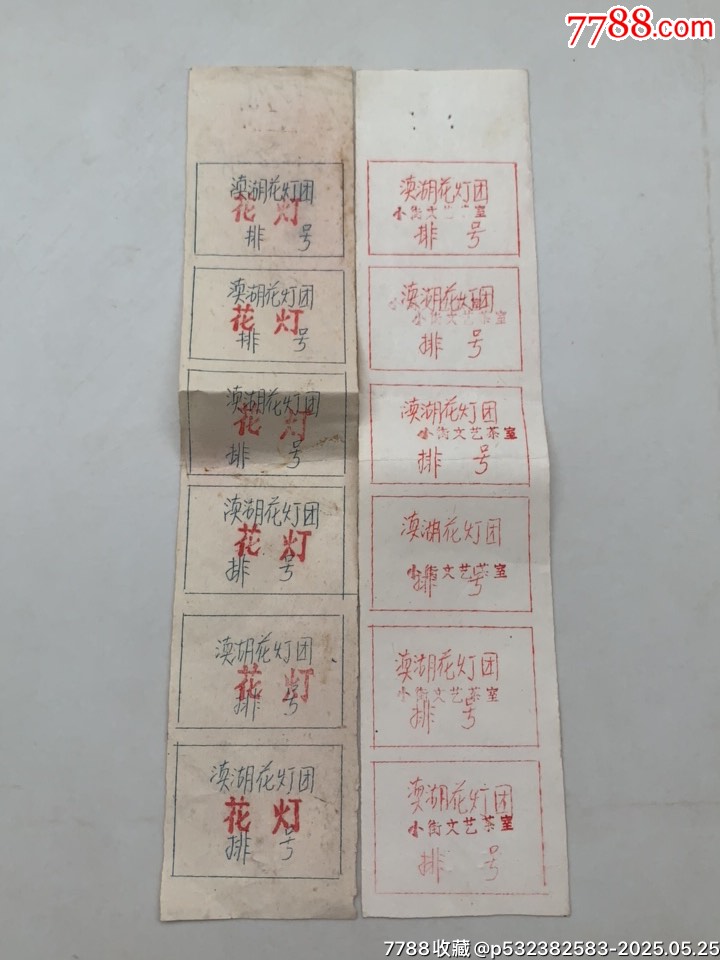 7788.com
滇湖花灯团
花灯
排 号
滇湖花灯团
花灯
排 号
滇湖花灯团
花灯
排 号
滇湖花灯团
花灯
排 号
滇湖花灯团
花灯
排 号
滇湖花灯团
花灯
排 号
滇湖花灯团
小街文艺茶室
排 号
滇湖花灯团
小街文艺茶室
排 号
滇湖花灯团
小街文艺茶室
排 号
滇湖花灯团
小街文艺茶室
排 号
滇湖花灯团
小街文艺茶室
排 号
滇湖花灯团
小街文艺茶室
排 号
7788收藏@p532382583-2025.05.25